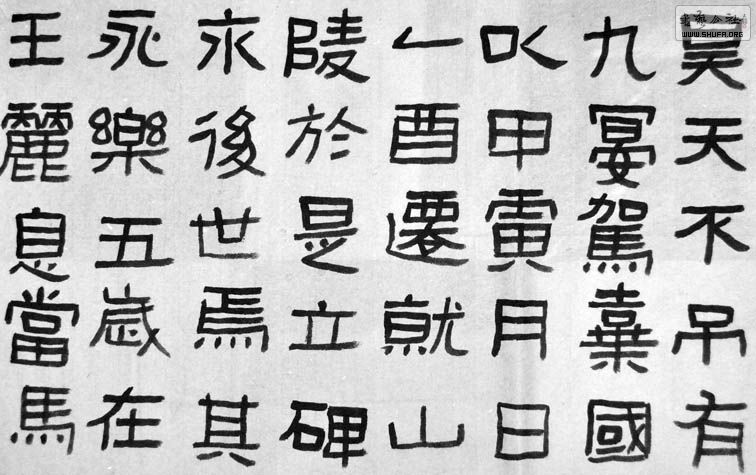 昊天不吊有
九宴駕棄國
以甲寅月日
乙酉遷就山
陵於是立碑
示後世焉其
永樂五歲在
王麗息當馬
書藝公社
WWW.SHUFA.ORG